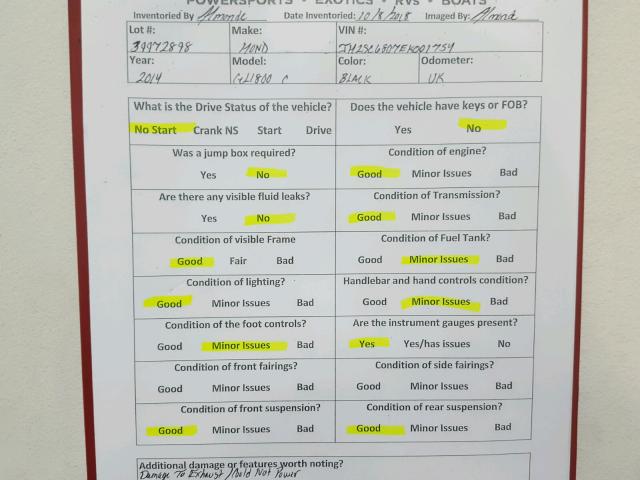 POWERSPORTS • EXOTICS • RVs • BOATS
Inventoried By Almonde Date Inventoried: 10/8/2018 Imaged By: Almonde
Lot #: Make: VIN #:
39972898 HOND
Year: Model: Color: Odometer:
2014 GL1800 C BLACK UK
What is the Drive Status of the vehicle? Does the vehicle have keys or FOB?
No Start Crank NS Start Drive Yes No
Was a jump box required? Condition of engine?
Yes No Good Minor Issues Bad
Are there any visible fluid leaks? Condition of Transmission?
Yes No Good Minor Issues Bad
Condition of visible Frame Condition of Fuel Tank?
Good Fair Bad Good Minor Issues Bad
Condition of lighting? Handlebar and hand controls condition?
Good Minor Issues Bad Good Minor Issues Bad
Condition of the foot controls? Are the instrument gauges present?
Good Minor Issues Bad Yes Yes/has issues No
Condition of front fairings? Condition of side fairings?
Good Minor Issues Bad Good Minor Issues Bad
Condition of front suspension? Condition of rear suspension?
Good Minor Issues Bad Good Minor Issues Bad
Additional damage or features worth noting?
Damage To Exhaust / Could Not Power